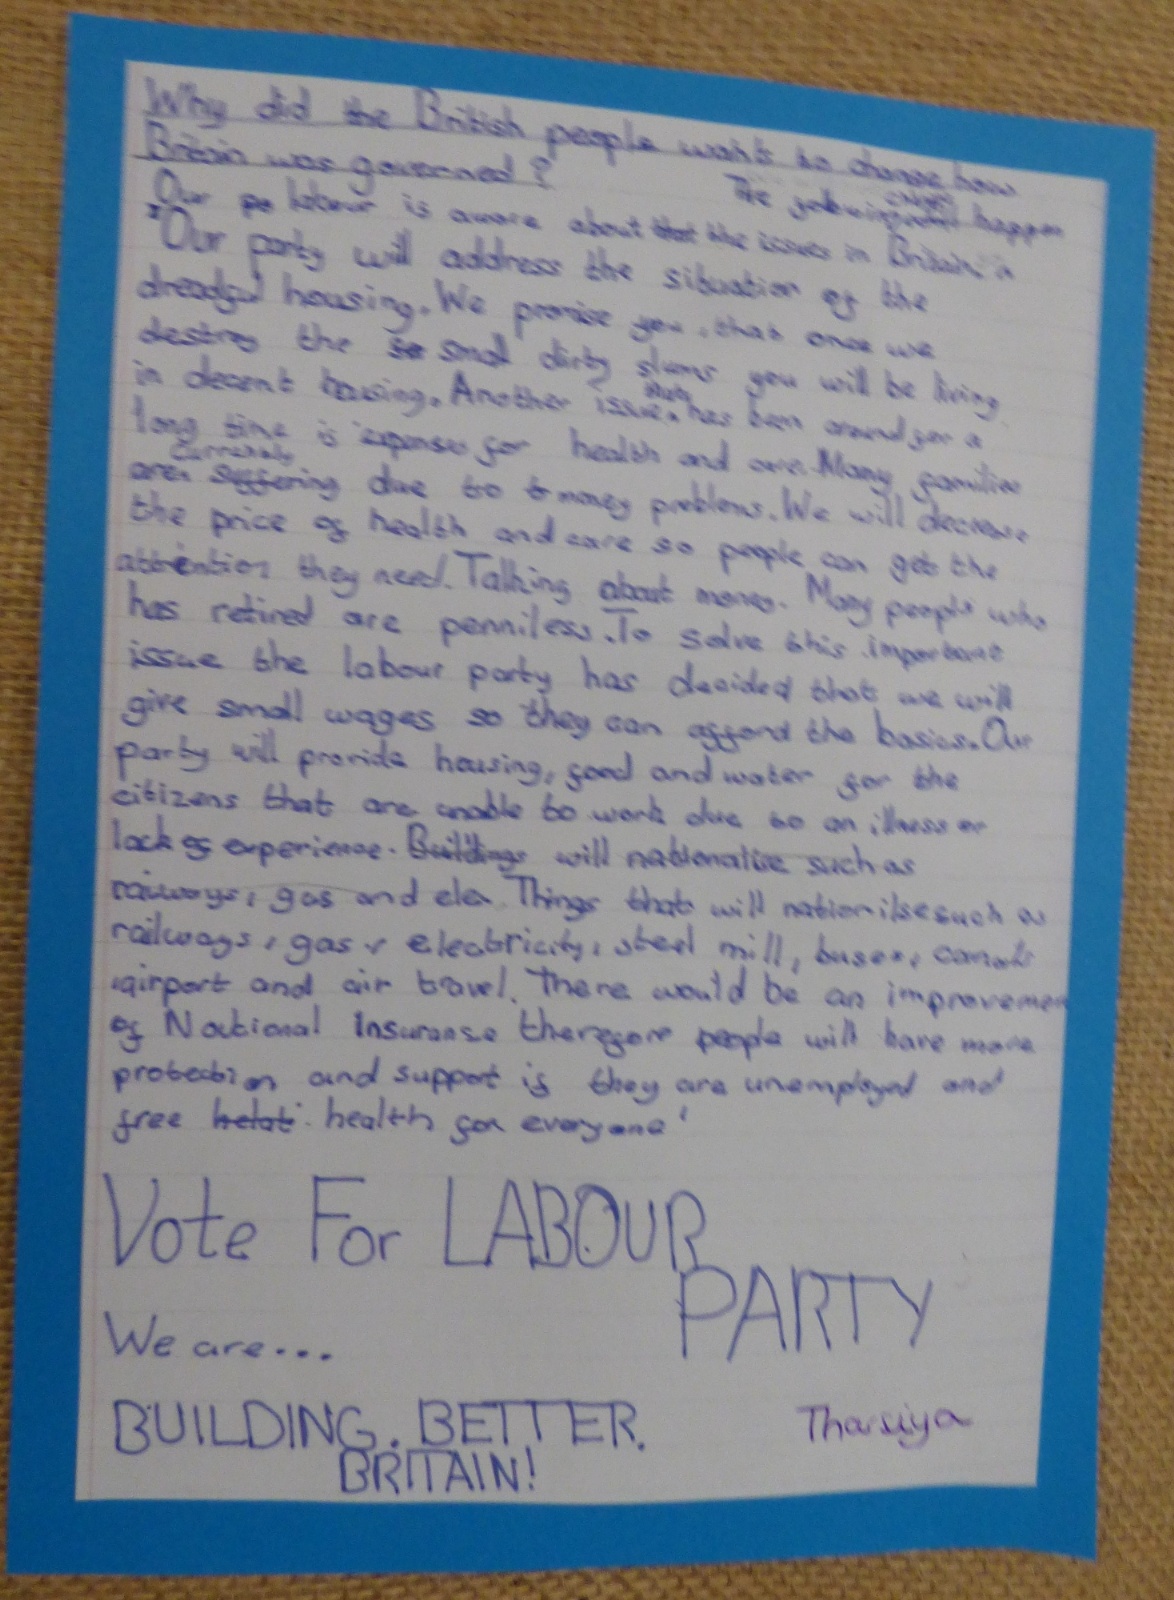 Why did the British people want to change how
Britain was governed?
The happen
Our po labour is aware about that the issues in Britain.
"Our party will address the situation of the
dreadful housing. We promise you, that once we
destroy the so small dirty slums you will be living
in decent housing. Another issue. has been around for a
long time is expenses for health and care. Many families
currently
are suffering due to to money problems. We will decrease
the price of health and care so people can get the
attention they need. Talking about money. Many people who
has retired are penniless. To solve this important
issue the labour party has decided that we will
give small wages so they can afford the basics. Our
party will provide housing, food and water for the
citizens that are unable to work due to an illness or
lack of experience. Buildings will nationalise such as
railways, gas and ele Things that will nationilse such as
railways, gas, electricity, steel mill, buses, canals
airport and air travel. There would be an improvemen
of National Insuranse therefore people will have more
protection and support is they are unemployed and
free helat health for everyone'
Vote For LABOUR
PARTY
We are...
BUILDING. BETTER.
BRITAIN!
Tharsiya